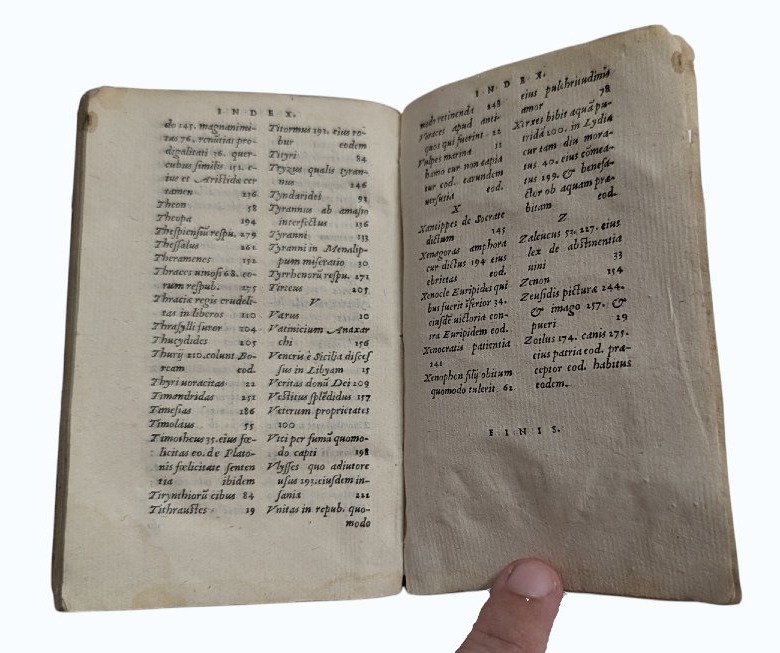 INDEX.
do 145. magnanimi-
tas 76. renūtias pro-
digalitati 76. quer-
cubus similis 151. e-
ius et Aristidæ cer-
tamen 236
Theon 58
Theopa 194
Thespiensiū respu. 279
Thessalus 261
Theramenes 152
Thraces uinosi 68. eo-
rum respub. 275
Thraciæ regis crudeli-
tas in liberos 110
Thrasylli furor 104
Thucydides 205
Thurij 210. colunt Bo-
ream eod.
Thyri uoracitas 22
Timandridas 251
Timesias 286
Timolaus 55
Timotheus 35. eius fœ-
licitas eo. de Plato-
nis fœlicitate senten
tia ibidem
Tirynthiorū cibus 84
Tithraustes 19
Titormus 192. eius ro-
bur eodem
Tityri 84
Tryzus qualis tyran-
nus 246
Tyndarides 93
Tyrannus ab amasio
interfectus 136
Tyranni 233
Tyranni in Menalip-
pum miseratio 30
Tyrrhenorū respu. 271
Tirteus 205
V
Varus 10
Vatinicium Anaxar
chi 156
Veneris è Sicilia disces
sus in Libyam 15
Veritas donū Dei 209
Vestitus splēdidus 157
Veterum proprietates
100
Vici per fumū quomo-
do capti 198
Vlysses quo adiutore
usus 193. eiusdem in-
sania 222
Vnitas in repub. quo-
modo
INDEX.
modo retinenda 248
Voraces apud anti-
quos qui fuerint 22
Vulpes marina 11
hamo cur non capia
tur eod. earundem
uersutia eod.
X
Xantippes de Socrate
dictum 145
Xenagoras amphora
cur dictus 194 eius
ebrietas eod.
Xenocle Euripides qui
bus fuerit īferior 34.
eiusdē uictoria con-
tra Euripidem eod.
Xenocratis patientia
241
Xenophen filij obitum
quomodo tulerit 62
eius pulchritudinis
amor 78
Xerxes bibit aquā pu-
tridā 200. in Lydia
cur tam diu mora-
tus 40. eius cōmea-
tus 199. & benefa-
ctor ob aquam præ-
bitam eod.
Z
Zaleucus 52. 227. eius
lex de abstinentia
uini 33
Zenon 154
Zeusidis picturæ 244.
& imago 257. &
pueri 29
Zoilus 174. canis 175.
eius patria eod. præ-
ceptor eod. habitus
eodem.
FINIS.